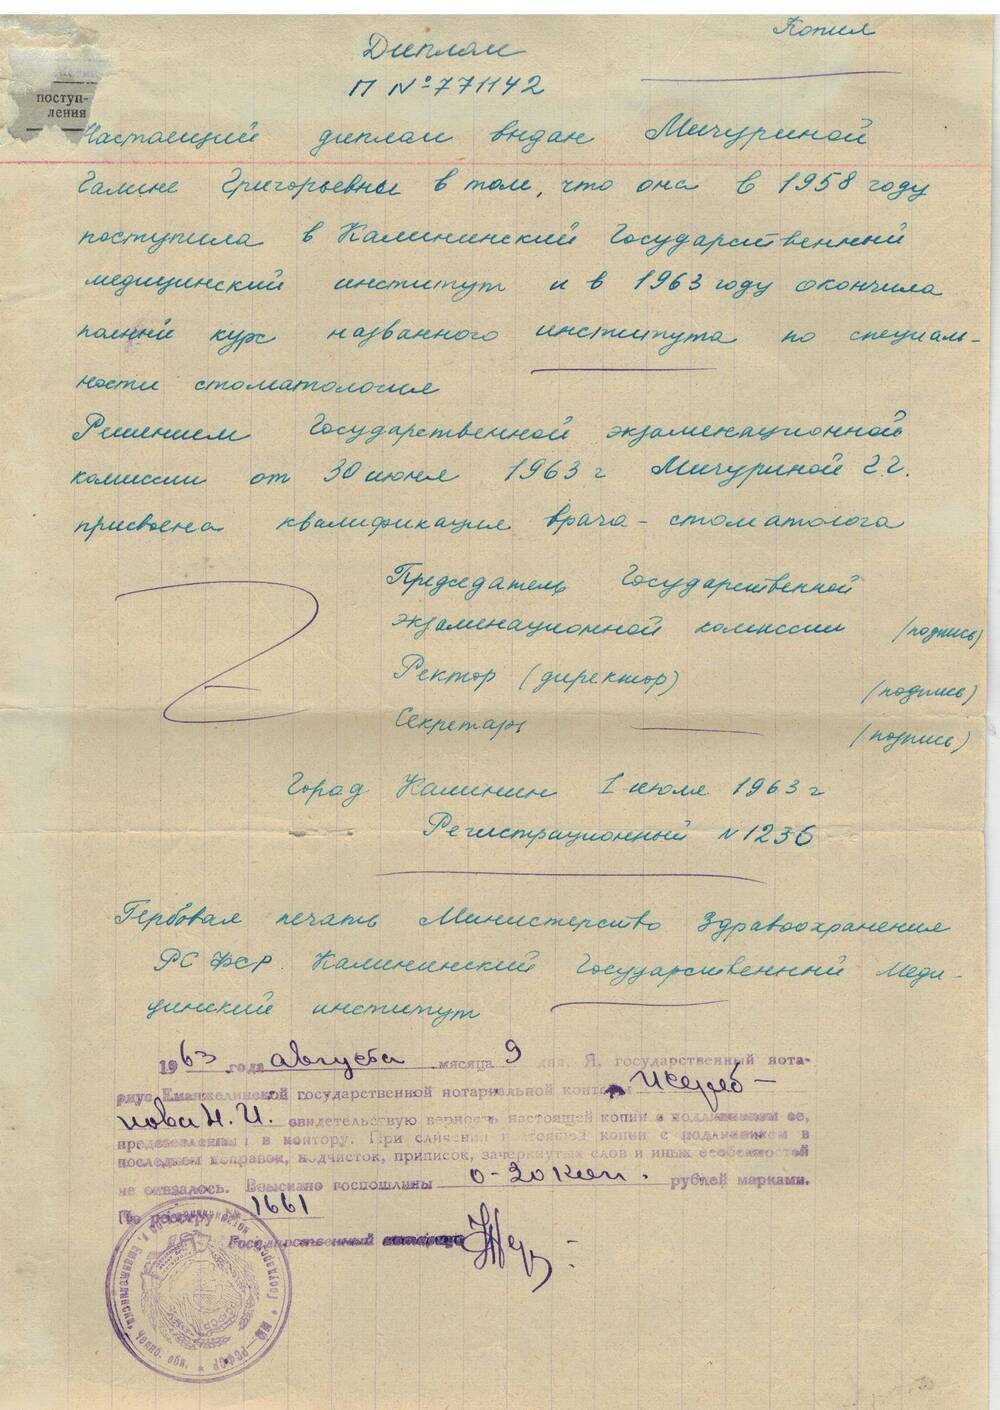 Копия
Диплом
П № 771142
поступ-
ления
Настоящий диплом выдан Мичуриной
Галине Григорьевны в том, что она в 1958 году
поступила в Калининский Государственный
медицинский институт и в 1963 году окончила
полный курс названного института по специаль-
ности стоматология
Решением Государственной экзаменационной
комиссии от 30 июня 1963 г Мичуриной Г.Г.
присвоена квалификация врача-стоматолога
Председатель Государственной
экзаменационной комиссии (подпись)
Ректор (директор) (подпись)
Секретарь (подпись)
Город Калинин 1 июля 1963 г
Регистрационный № 1236
Гербовая печать Министерство Здравоохранения
РСФСР. Калининский Государственный Меди-
цинский институт
1963 года августа месяца 9 дня. Я, государственный нота-
риус Еманжелинской государственной нотариальной конторы
нова Н.И. свидетельствую верность настоящей копии с подлинником ее,
представленным в контору. При сличении настоящей копии с подлинником в
последнем поправок, подчисток, приписок, зачеркнутых слов и иных особенностей
не оказалось. Взыскано госпошлины 0-20 коп. рублей марками.
По реестру 1661
Государственный нотариус